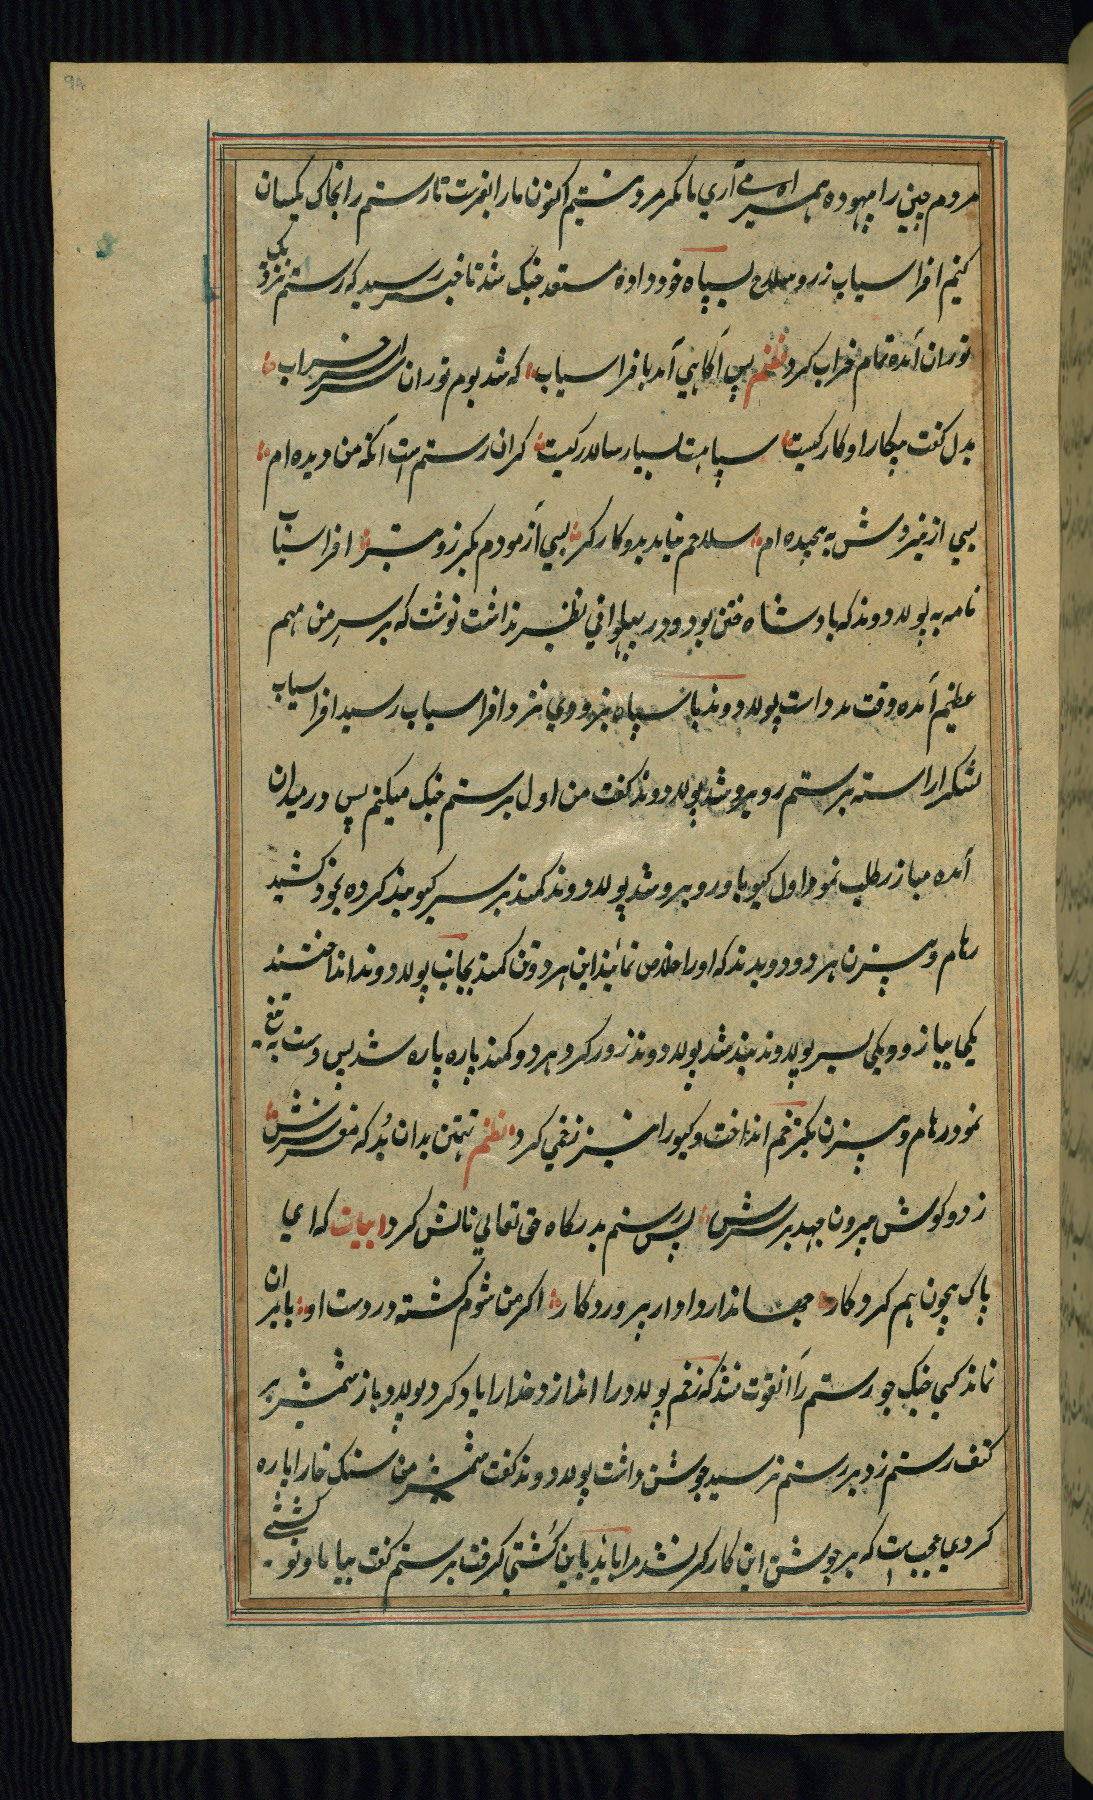 مردم چینی را بیهوده همراه می آری ما مگر مرد نیستیم اکنون ما را بفرست تا رستم را بخاک یکسان
کنیم افراسیاب زر و سلاح بسپاه خود داده مستعد جنک شد تا خبر رسید که رستم نزدیک
توران آمده تمام خراب کرد نظم پس آگاهی آمد بافراسیاب که شد بوم توران سراسر خراب
بدل کفت پیکار او کار کیست سپاهست بسیار سالار کیست گر آن رستم است آنکه من دیده ام
بسی از نبردش به پیچیده ام سلاحم نیاید بدو کارگر بسی آزمودم بگرز و تبر افراسیاب
نامه به پولادوند که پادشاه ختن بود و در پهلوانی نظیر نداشت نوشت که بر سر من مهم
عظیم آمده وقت مدد است پولادوند با سپاه بزودی نزد افراسیاب رسید افراسیاب
لشکر اراسته برستم روبرو شد پولادوند کفت من اول برستم جنک میکنم پس در میدان
آمده مبارز طلب نمود اول کیو باو روبرو شد پولادوند کمند بر سر کیو بند کرده بخود کشید
رهام و بیزن هر دو دویدند که او را خلاص نمایند این هر دو تن کمند بجانب پولادوند انداختند
یکی ببازو و یکی بسر پولادوند بند شد پولادوند زور کرد هر دو کمند پاره پاره شد پس دست به تیغ
نمود رهام و بیزن بکرزخم انداخت و کیو را نیز زخمی کرد نظم تهمتن بدان بد که مغز سرش
ز دو کوش بیرون جهد بر سرش پس رستم بدرگاه حق تعالی نالش کرد ابیات که ای
پاک بیچون هم کردکار جهاندار و داوار پروردکار اکر من شوم کشته در دست او بایران
نماند کسی جنک جو رستم را آنقوت نشد که زخم پولاد را اندازد خدا را یاد کرد پولاد باز شمشیر بر
کتف رستم زد بر رستم نرسید جوشن داشت پولادوند کفت شمشیر من سنک خارا پاره
کردی عجبست که بر جوشن این کارکر نشد مرا باید باین کشتی کرفت برستم کفت بیا ما و تو کشتی